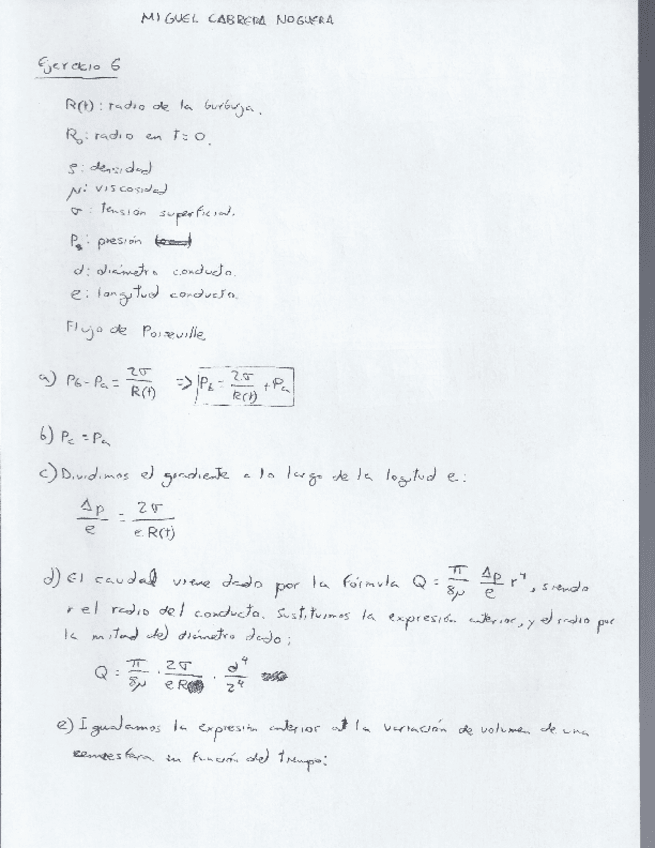 MIGUEL CABRERA NOGUERA
Ejercicio 6
R(t): radio de la burbuja.
R₀: radio en t=0.
ρ: densidad
μ: viscosidad
σ: tensión superficial.
Pₐ: presión
d: diámetro conducto.
e: longitud conducto.
Flujo de Poiseville
a) P_b - Pₐ = 2σ/R(t) => P_b = 2σ/R(t) + Pₐ
b) P_c = Pₐ
c) Dividimos el gradiente a lo largo de la logitud e:
Δp/e = 2σ/(e R(t))
d) El caudal viene dado por la fórmula Q = π/8μ Δp/e r⁴, siendo
r el radio del conducto. Sustituimos la expresión anterior, y el radio por
la mitad del diámetro dado:
Q = π/8μ · 2σ/(e R) · d⁴/2⁴
e) Igualamos la expresión anterior a la variación de volumen de una
en función del tiempo: